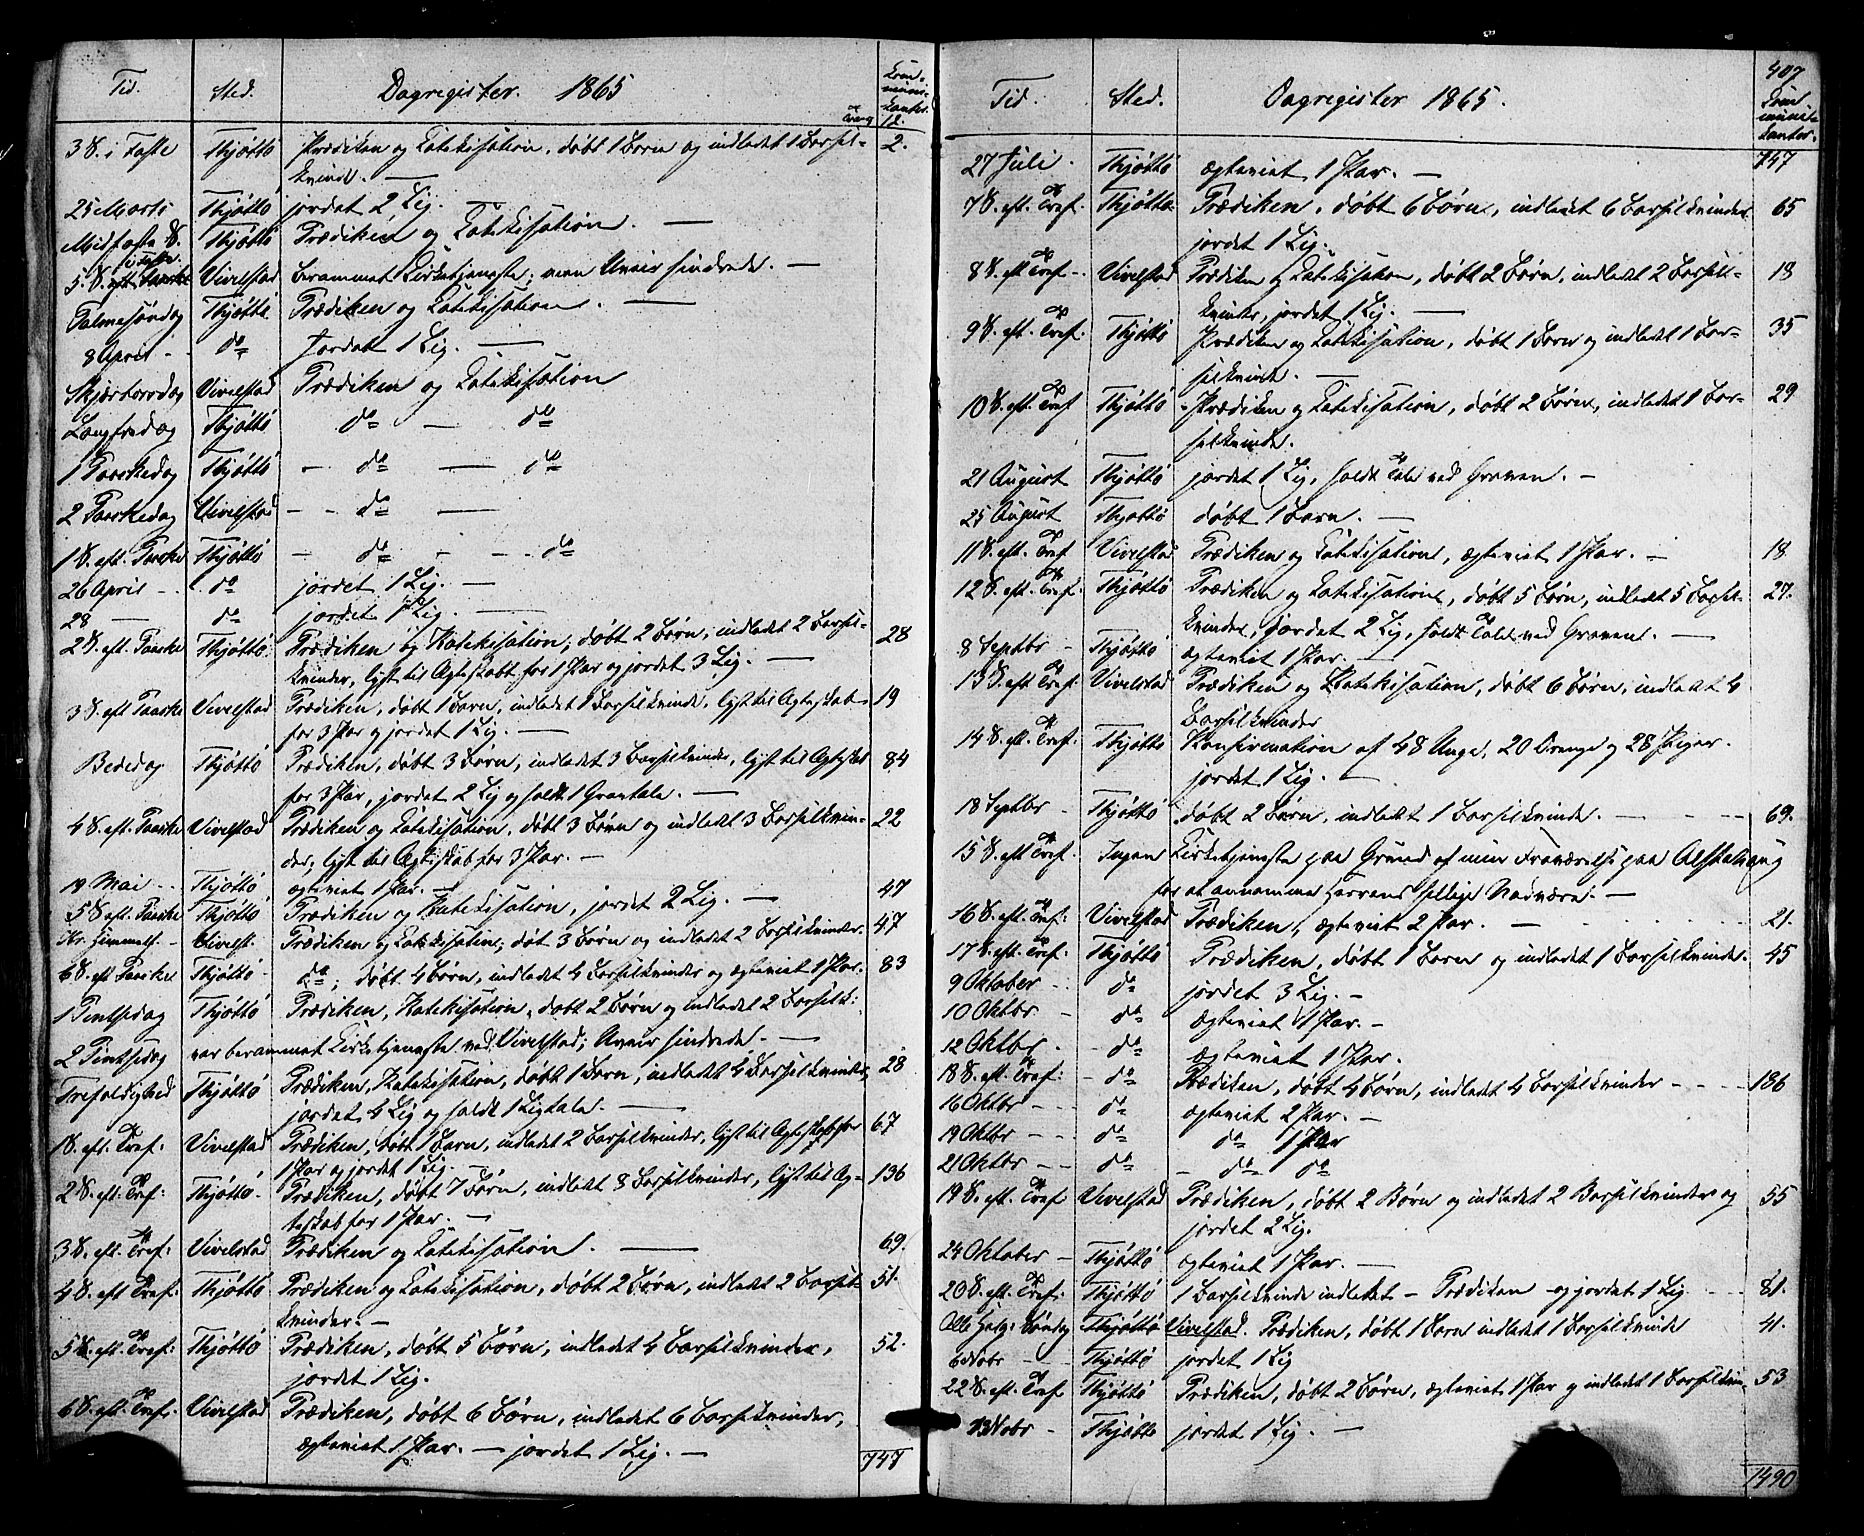 Tid. Sted. Dagregister. 1865 Kom-
muni-
kanter.
Trang 12.
3 S. i Faste Thjøttø Prædiken og Katekisation, døbt 1 Barn og indledet 1 Barsel- 2.
kvinde. —
25 Marts Thjøttø jordet 2 Lig. —
Midfaste S. Thjøttø Prædiken og Katekisation. —
5. S. i Faste Vivelstad berammet Kirketjeneste; men Uveir hindrede. —
Palmesøndag Thjøttø Prædiken og Katekisation. —
8 April - do Jordet 1 Lig. —
Skjærtorsdag Vivelstad Prædiken og Katekisation
Langfredag Thjøttø do — do
1 Paaskedag Thjøttø — do — do
2 Paaskedag Vivelstad - - do —
1 S. eft. Paaske Thjøttø — do - - - do
26 April - do jordet 1 Lig. —
28 — do jordet 1 Lig. —
2 S. eft. Paaske Thjøttø. Prædiken og Katekisation; døbt 2 Børn; indledet 2 Barsel- 28
kvinder, lyst til Ægteskab for 1 Par og jordet 3 Lig. —
3 S. eft Paaske Vivelstad Prædiken, døbt 1 Barn, indledet 1 Barselkvinde, lyst til Ægteskab 19
for 3 Par og jordet 1 Lig. —
Bededag Thjøttø Prædiken, døbt 3 Børn, indledet 3 Barselkvinder, lyst til Ægteskab 84
for 3 Par, jordet 2 Lig og holdt 1 Gravtale. —
4 S. eft. Paaske Vivelstad Prædiken og Katekisation, døbt 3 Børn og indledet 3 Barselkvin- 22
der; lyst til Ægteskab for 3 Par. —
19 Mai - - Thjøttø ægteviet 1 Par. —
5 S. eft. Paaske Thjøttø Prædiken og Katekisation, jordet 2 Lig. — 47
Kr. Himmelf. - Vivelst. Prædiken og Katekisation; døbt 3 Børn og indledet 2 Barselkvinder. 47
6 S. eft Paaske Thjøttø - do; døbt 4 Børn, indledet 4 Barselkvinder og ægteviet 1 Par. 83
1 Pintsedag Thjøttø Prædiken, Katekisation, døbt 2 Børn og indledet 2 Barselk:
2 Pintsedag var berammet Kirketjeneste ved Vivelstad; Uveir hindrede. —
Trefoldighed Thjøttø Prædiken, Katekisation, døbt 1 Barn, indledet 4 Barselkvinder, 28
jordet 4 Lig og holdt 1 Ligtale. —
1 S. eft. Tref: Vivelstad Prædiken, døbt 1 Barn, indledet 2 Barselkvinder, lyst til Ægteskab for 67
1 Par og jordet 1 Lig.
2 S. eft. Tref: Thjøttø - Prædiken, døbt 7 Børn, indledet 8 Barselkvinder, lyst til Æg- 136
teskab for 1 Par. —
3 S. eft. Tref: Vivelstad Prædiken og Katekisation. — 69.
4 S. eft Tref: Thjøttø Prædiken og Katekisation, døbt 2 Børn, indledet 2 Barsel- 51.
kvinder. —
5 S. eft. Tref: Thjøttø Prædiken, døbt 5 Børn, indledet 4 Barselkvinder, 52.
jordet 1 Lig.
6 S. eft. Tref. Vivelstad Prædiken, døbt 6 Børn, indledet 6 Barselkvinder,
ægteviet 1 Par. — jordet 1 Lig. —
747
407
Tid. Sted. Dagregister 1865. Kom
muni-
kanter.
747
27 Juli. Thjøttø ægteviet 1 Par. —
7 S. eft. Tref. Thjøttø Prædiken, døbt 6 Børn, indledet 6 Barselkvinder. 65
jordet 1 Lig.
8 S. eft Tref - Vivelstad Prædiken og Katekisation, døbt 2 Børn, indledet 2 Barsel- 18
kvinder, jordet 1 Lig. —
9 S. eft. Tref: Thjøttø Prædiken og Katekisation, døbt 1 Barn og indledet 1 Bar- 35
selkvinde. —
10 S. eft. Tref Thjøttø - Prædiken og Katekisation, døbt 2 Børn, indledet 1 Bar- 29
selkvinde.
21 August Thjøttø jordet 1 Lig, holdt Tale ved Graven. —
25 August Thjøttø døbt 1 Barn. —
11 S. eft. Tref Vivelstad Prædiken og Katekisation, ægteviet 1 Par. — 18
12 S. eft. Tref: Thjøttø Prædiken og Katekisation, døbt 5 Børn, indledet 5 Barsel- 27.
kvinder, jordet 2 Lig, holdt Tale ved Graven. —
8 Septbr - Thjøttø ægteviet 1 Par. —
13 S. eft. Tref: Vivelstad Prædiken og Katekisation, døbt 6 Børn, indledet 4
Barselkvinder
14 S. eft. Tref: Thjøttø Konfirmation af 48 Unge, 20 Drenge og 28 Piger.
jordet 1 Lig. —
18 Septbr - Thjøttø døbt 2 Børn, indledet 1 Barselkvinde. — - - - 69.
15 S. eft Tref. Ingen Kirketjeneste paa Grund af min Fraværelse paa Alstahaug
for at annamme Herrens hellige Nadvere. —
16 S. eft. Tref: Vivelstad Prædiken, ægteviet 2 Par. — 21.
17 S. eft. Tref: Thjøttø Prædiken, døbt 1 Barn og indledet 1 Barselkvinde. 45
9 Oktober - do jordet 3 Lig. —
10 Oktbr - do ægteviet 1 Par. —
12 Oktbr. - do ægteviet 1 Par.
18 S. eft. Tref: - do Prædiken, døbt 4 Børn, indledet 4 Barselkvinder - - - - 186
16 Oktbr - - do ægteviet 2 Par. —
19 Oktbr - - do do 1 Par
21 Oktbr - - do - do do
19 S. eft. Tref Vivelstad Prædiken, døbt 2 Børn og indledet 2 Barselkvinder og 55
jordet 2 Lig.
24 Oktober - Thjøttø ægteviet 1 Par. —
20 S. eft. Tref: Thjøttø 1 Barselkvinde indledet - Prædiken - og jordet 1 Lig - - - 81.
Alle Helg: Søndag Thjøttø Vivelstad. Prædiken, døbt 1 Barn indledet 1 Barselkvinde 41.
6 Novbr - Thjøttø jordet 1 Lig
22 S. eft. Tref Thjøttø Prædiken, døbt 2 Børn, ægteviet 1 Par og indledet 1 Barselkvin- 53
13 Novbr - Thjøttø jordet 1 Lig. —
1490